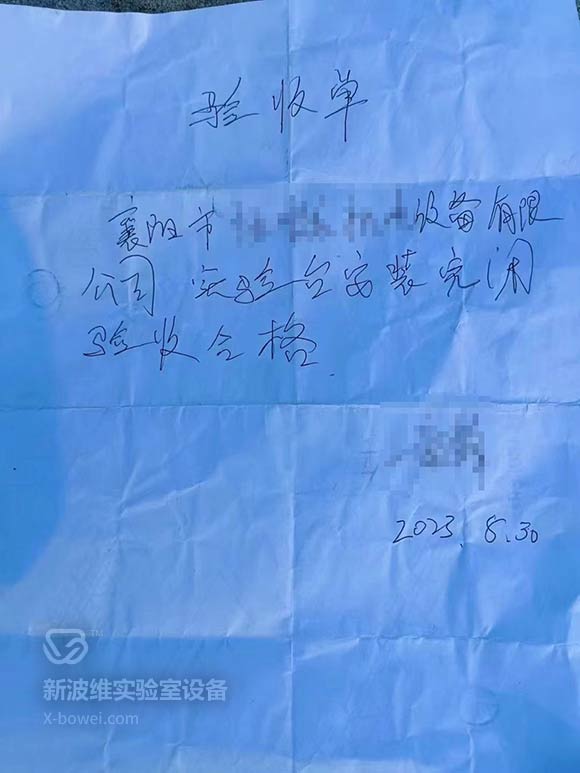 验收单
襄阳市 设备有限
公司 实验台安装完闭
验收合格.
2023.8.30
TM
新波维实验室设备
X-bowei.com